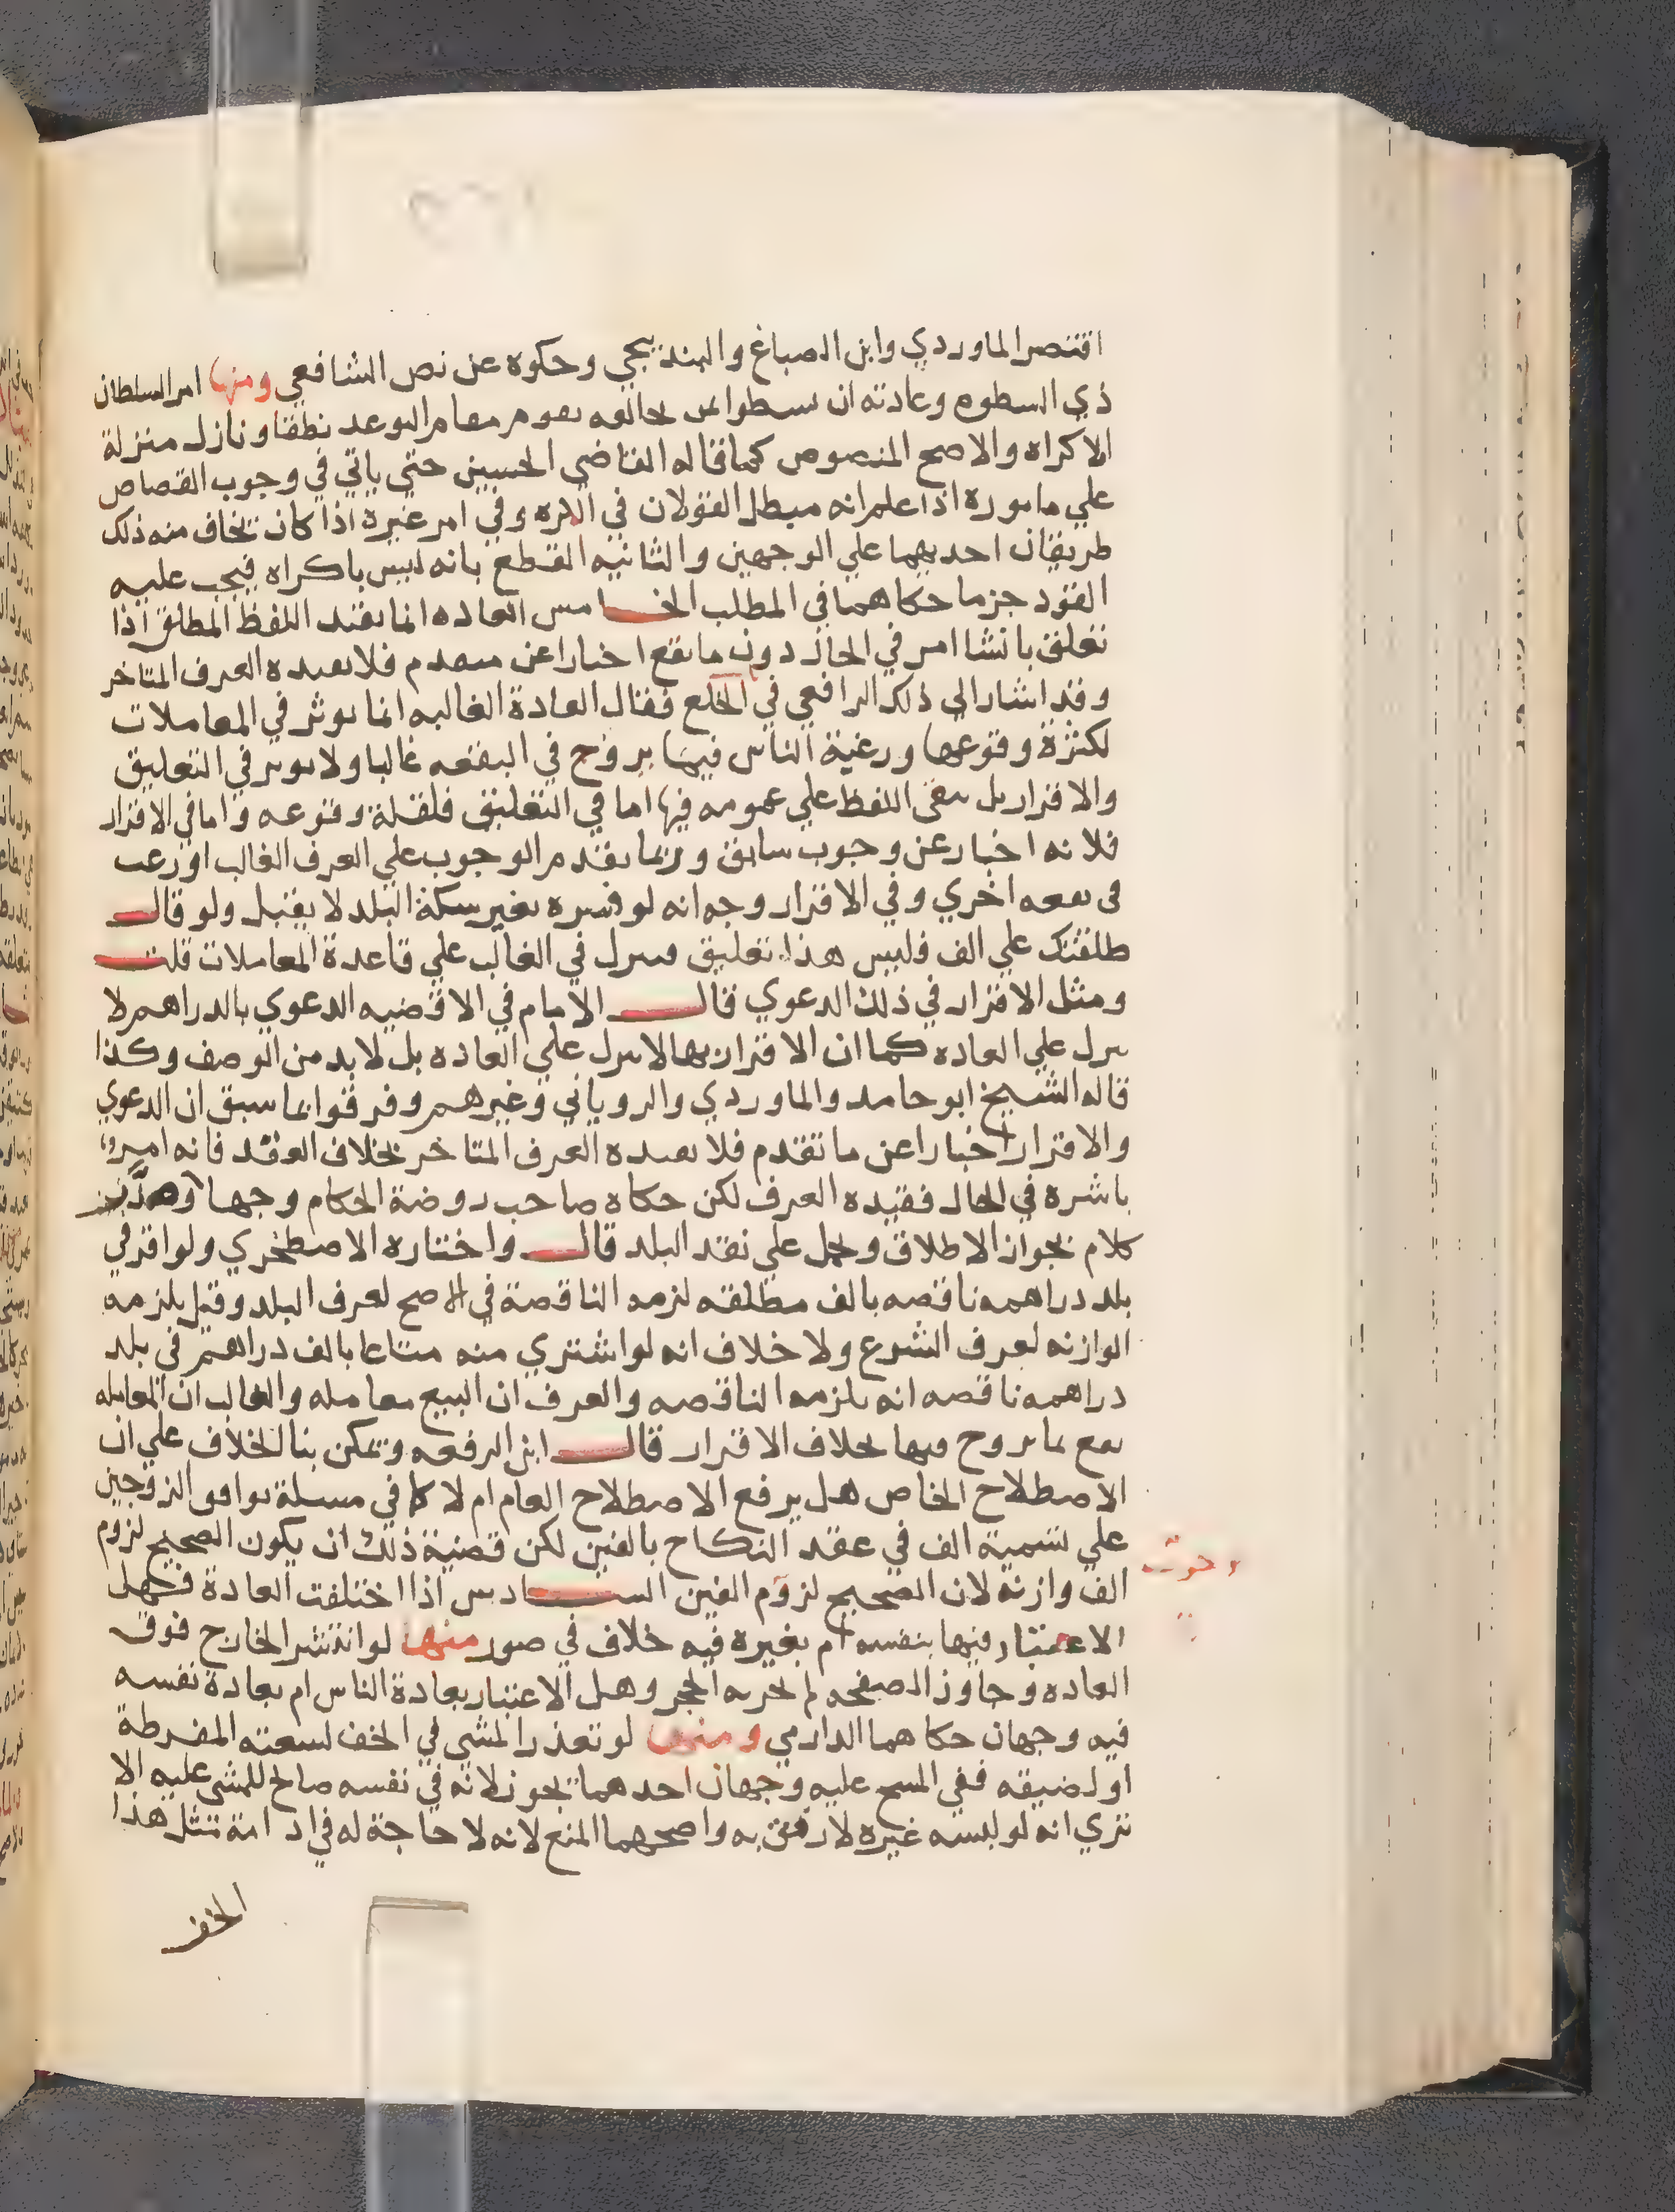 اقتصر الماوردي وابن الصباغ والبندنيجي وحكوه عن نص الشافعي ومنها امر السلطان
ذي السطوه وعادته ان يسطوا بمن يخالفه يقوم مقام التوعد نطقا ونازل منزلة
الاكراه والاصح المنصوص كما قاله القاضي الحسين حتى ياتي في وجوب القصاص
علي مامورة اذا علم انه مبطل القولان في المكره وفي امر غيره اذا كان يخاف منه ذلك
طريقان احديهما علي الوجهين والثانيه القطع بانه ليس باكراه فيجب عليه
القود جزما حكاهما في المطلب الخامس العاده انما تقيد اللفظ المطلق اذا
تعلق بانشا امر في الحال دون ما يقع اخبارا عن متقدم فلا يقيده العرف المتاخر
وقد اشار الى ذلك الرافعي في الخلع فقال العادة الغالبه انما توثر في المعاملات
لكثرة وقوعها ورغبة الناس فيما يروج في البقعه غالبا ولا يوثر في التعليق
والاقرار بل يبقى اللفظ علي عمومه فيها اما في التعليق فلقلة وقوعه واما في الاقرار
فلانه اخبار عن وجوب سابق وربما يقدم الوجوب علي العرف الغالب او رغب
في بقعه اخري وفي الاقرار وجه انه لو فسره بغير سكة البلد لا يقبل ولو قال
طلقتك علي الف فليس هذا تعليق فينزل في الغالب علي قاعدة المعاملات قلت
ومثل الاقرار في ذلك الدعوي قال الامام في الاقضيه الدعوي بالدراهم لا
ينزل علي العاده كما ان الاقرار بها لا ينزل علي العاده بل لا بد من الوصف وكذا
قاله الشيخ ابو حامد والماوردي والروياني وغيرهم وفرقوا بما سبق ان الدعوي
والاقرار اخبارا عن ما تقدم فلا يقيده العرف المتاخر بخلاف العقد فانه امر
باشره في الحال فقيده العرف لكن حكاه صاحب روضة الحكام وجها
كلام بجواز الاطلاق ويحمل علي نقد البلد قال واختاره الاصطخري ولو اقر في
بلد دراهمه ناقصه بالف مطلقه لزمه الناقصة في الاصح لعرف البلد وقيل يلزمه
الوازنه لعرف الشرع ولا خلاف انه لو اشتري منه متاعا بالف دراهم في بلد
دراهمه ناقصه انه يلزمه الناقصه والعرف ان البيع معامله والغالب ان المعامله
تقع بما يروج فيها بخلاف الاقرار قال ابن الرفعه ويمكن بنا الخلاف علي ان
الاصطلاح الخاص هل يرفع الاصطلاح العام ام لا كما في مسيلة توافق الزوجين
علي تسمية الف في عقد النكاح بالفين لكن قضية ذلك ان يكون الصحيح لزوم
الف وازنة لان الصحيح لزوم الفين السادس اذا اختلفت العادة فهل
الاعتبار فيها بنفسه ام بغيره فيه خلاف في صور منها لو انتشر الخارج فوق
العاده وجاوز الصفحه لم يجزيه الحجر وهل الاعتبار بعادة الناس ام بعادة نفسه
فيه وجهان حكاهما الدارمي ومنها لو تعذر المشي في الخف لسعته المفرطة
او لضيقه ففي المسح عليه وجهان احدهما يجوز لانه في نفسه صالح للمشي عليه الا
تري انه لو لبسه غيره لارتفق به واصحهما المنع لانه لا حاجة له في ادامة مثل هذا
الخف